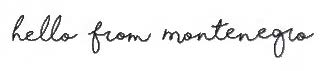 hello from montenegro